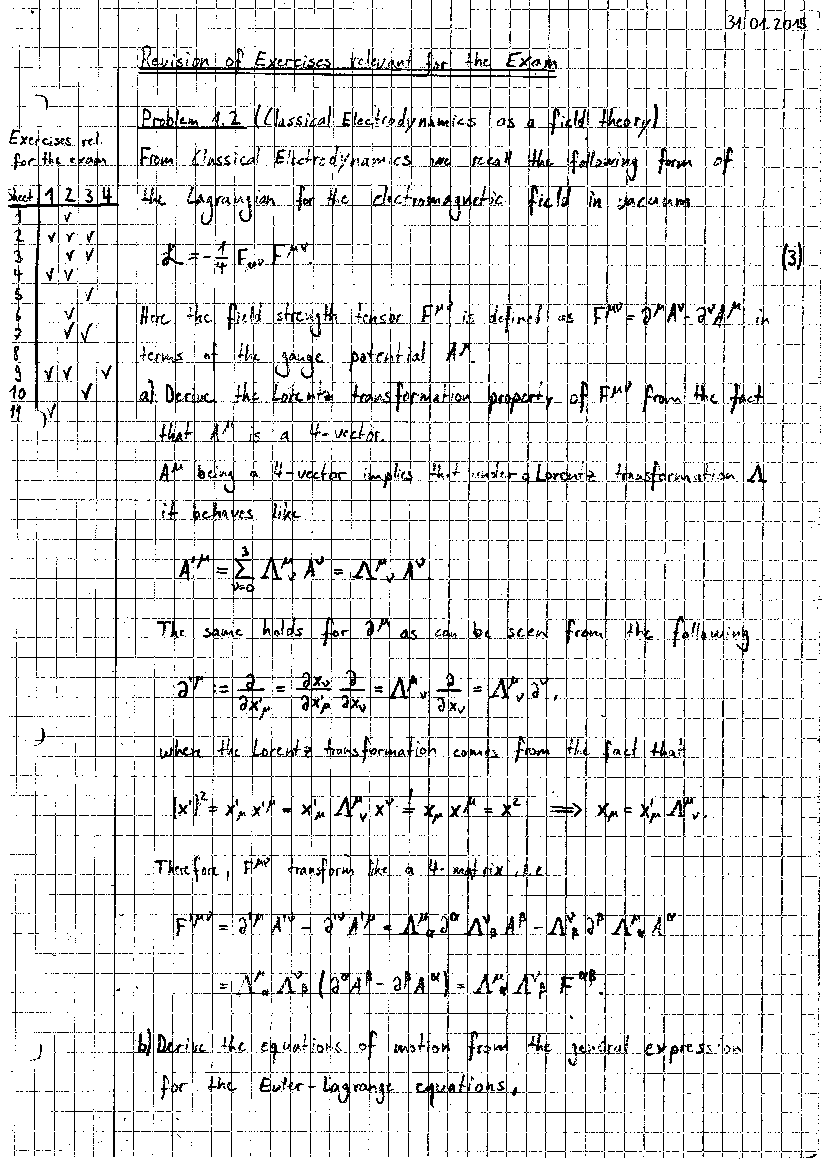 31.01.2015
Revision of Exercises relevant for the Exam
Exercises rel.
for the exam
Sheet 1 2 3 4
1 √
2 √ √ √
3 √ √
4 √ √
5 √
6 √
7 √ √
8
9 √ √ √
10 √
11 √
Problem 1.2 (Classical Electrodynamics as a field theory)
From Classical Electrodynamics we recall the following form of
the Lagrangian for the electromagnetic field in vacuum
ℒ = -1/4 F_μν F^μν. (3)
Here the field strength tensor F^μν is defined as F^μν = ∂^μ A^ν - ∂^ν A^μ in
terms of the gauge potential A^μ.
a) Derive the Lorentz transformation property of F^μν from the fact
that A^μ is a 4-vector.
A^μ being a 4-vector implies that under a Lorentz transformation Λ
it behaves like
A'^μ = Σ_{ν=0}^{3} Λ^μ_ν A^ν = Λ^μ_ν A^ν
The same holds for ∂^μ as can be seen from the following
∂'^μ := ∂/∂x'_μ = ∂x_ν/∂x'_μ ∂/∂x_ν = Λ^μ_ν ∂/∂x_ν = Λ^μ_ν ∂^ν,
where the Lorentz transformation comes from the fact that
(x')^2 = x'_μ x'^μ = x'_μ Λ^μ_ν x^ν =! x_μ x^μ = x^2 ⟹ x_μ = x'_μ Λ^μ_ν.
Therefore, F^μν transform like a 4-matrix, i.e
F'^μν = ∂'^μ A'^ν - ∂'^ν A'^μ = Λ^μ_α ∂^α Λ^ν_β A^β - Λ^ν_β ∂^β Λ^μ_α A^α
= Λ^μ_α Λ^ν_β (∂^α A^β - ∂^β A^α) = Λ^μ_α Λ^ν_β F^αβ.
b) Derive the equations of motion from the general expression
for the Euler-Lagrange equations.